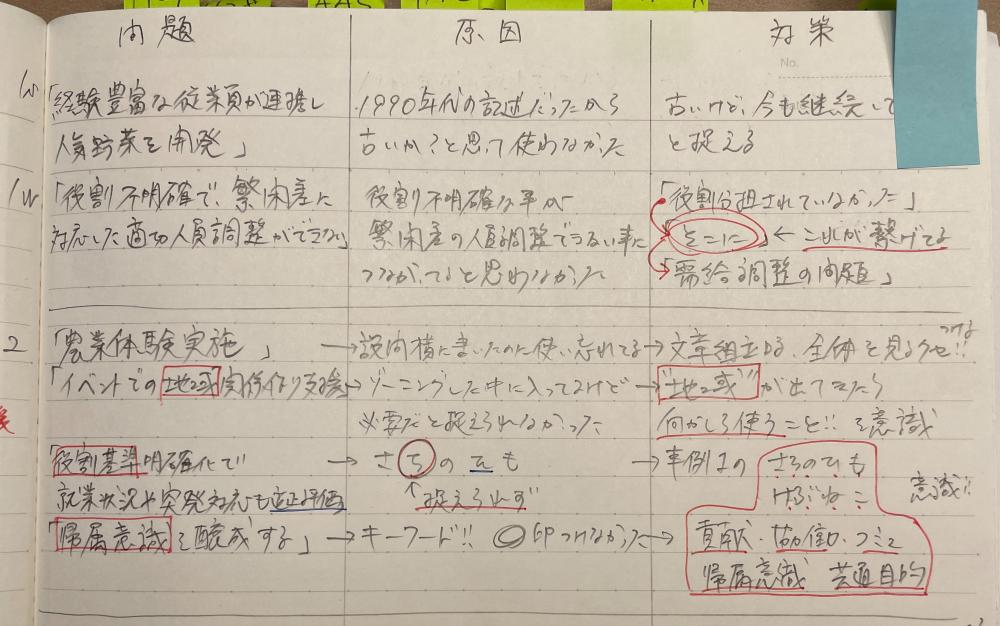 問題 原因 対策
No.
「経験豊富な従業員が連携し 1990年代の記述だったから 古いけど、今も継続して
人気野菜を開発」 古いか?と思って使わなかった と捉える
「役割不明確で、繁閑差に 役割不明確な事が 「役割分担されていなかった」
対応した適切人員調整ができない」 繁閑差の人員調整できない事に 「そこに」 ← これが繋げてる
つながってると思わなかった 「需給調整の問題」
2 「農業体験実施 」 → 設問横に書いたのに使い忘れてる → 文章組立する、全体を見るクセ!! つける
「イベントでの地域関係作り支援」 → ゾーニングした中に入ってるけど → "地域"が出てきたら
必要だと捉えられなかった 何かしら使うこと!!を意識
「役割基準明確化で → さちのひも → 事例Ⅰの さちのひも
就業状況や突発対応も適正評価 ↑捉えられず けぶかねこ 意識!!
「帰属意識を醸成する」 → キーワード!! 印つけなかった → 貢献・協働・コミュ
帰属意識 共通目的